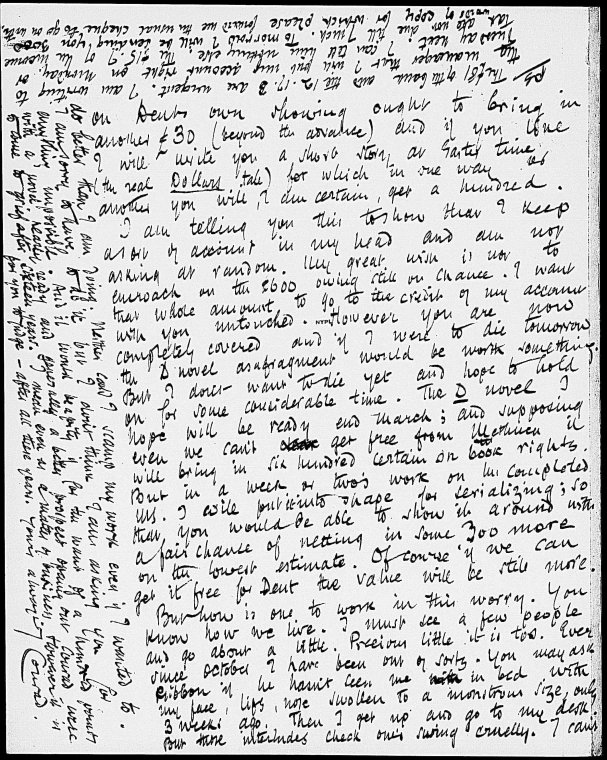 on Dents own showing ought to bring in
another £30 (beyond the advance) and if you like
I will write you a short story at Easter time
(the real Dollars tale) for which in one way or
another you will, I am certain, get a hundred.
I am telling you this to show that I keep
a sort of account in my head and am not
asking at random. My great wish is not to
encroach on the £600 owing still on Chance. I want
that whole amount to go to the credit of my account
with you untouched. However you are now
completely covered and if I were to die tomorrow
the D novel as a fragment would be worth something.
But I don't want to die yet and hope to hold
on for some considerable time. The D novel I
hope will be ready end March; and supposing
even we can't get free from Methuen it
will bring in six hundred certain on book rights.
But in a week or two's work on the completed
MS. I will put into shape for serializing; so
that you would be able to show it around with
a fair chance of netting in some 300 more
on the lowest estimate. Of course if we can
get it free for Dent the value will be still more.
But how is one to work in this worry. You
know how we live. I must see a few people
and go about a little. Precious little it is too. Ever
since October I have been out of sorts. You may ask
Gibbon if he hasn't seen me in bed with
my face, lips, nose swollen to a monstrous size, only
3 weeks ago. Then I get up and go to my desk.
But these interludes check one's swing cruelly. I can't
do better than I am doing. Neither could I scamp my work even if I wanted to.
I am sorry to have to do it but I don't think I am asking you for
anything impossible. And it would be a pity if for the want of a hundred pounds
with a novel nearly ready and generally a better prospect opening out Conrad were
to come to grief after sixteen years. I mean even as a matter of business. However it is
for you to judge – after all these years. Yours always J Conrad.
PS
The £81 of the bank and the 12.17.3 are urgent. I am writing to
the manager that I will put my account right on Monday, or
Tuesday next. I can tell him nothing else. The £5.7 of the income
Tax also due till 7 inst. To morrow I will be sending you 3000
words of copy for which please forward me the usual cheque to go on with.